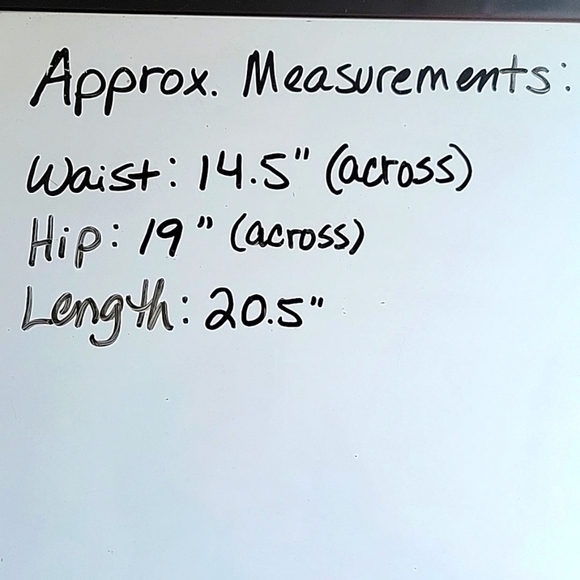 Approx. Measurements:
Waist: 14.5" (across)
Hip: 19" (across)
Length: 20.5"